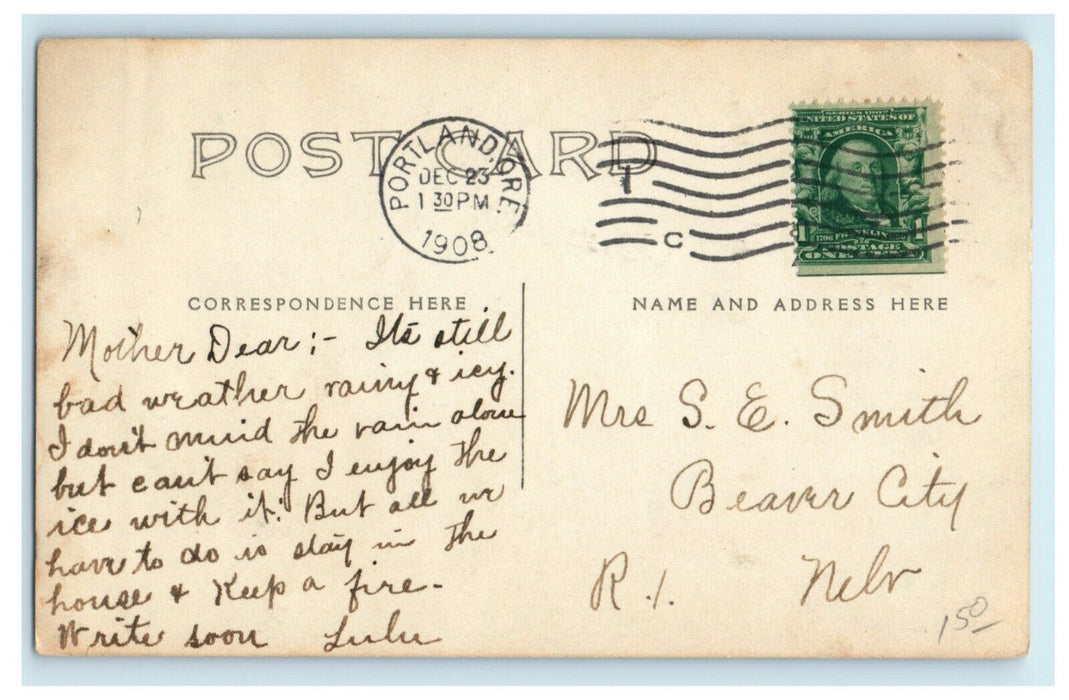 POST CARD
PORTLAND, ORE.
DEC 23
1 30 PM
1908
1
C
SERIES 1902
UNITED STATES OF
AMERICA
1706 FRANKLIN 1790
1 1
POSTAGE
ONE CENT
CORRESPONDENCE HERE
Mother Dear:- Its still
bad weather rainy & icy.
I don't mind the rain alone
but can't say I enjoy the
ice with it. But all we
have to do is stay in the
house & Keep a fire-
Write soon Lulu
NAME AND ADDRESS HERE
Mrs S. E. Smith
Beaver City
R.1. Nebr
150